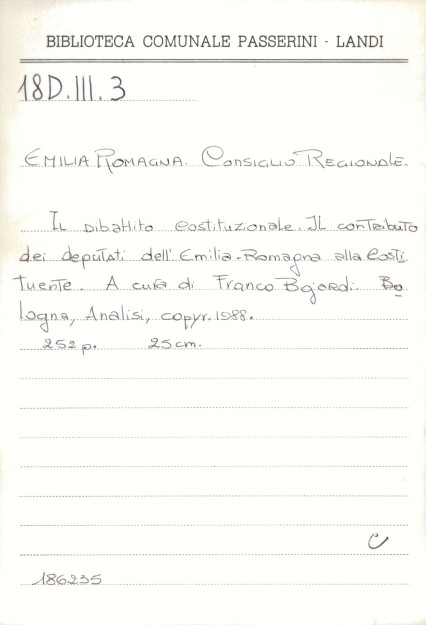 BIBLIOTECA COMUNALE PASSERINI - LANDI
18D.III.3
EMILIA ROMAGNA. CONSIGLIO REGIONALE.
IL DIBATTITO COSTITUZIONALE. IL CONTRIBUTO
dei deputati dell'Emilia-Romagna alla Costi
tuente. A cura di Franco Bojardi. Bo
logna, Analisi, copyr. 1988.
252 p. 25 cm.
C
186235